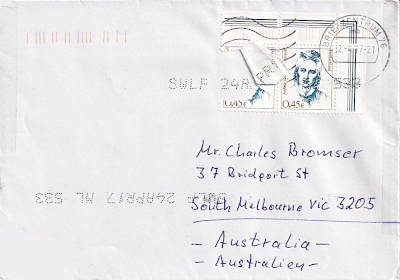 BRIEFZENTRUM 76
SWLF 24APR17 533
0,45€ 0,45€
Mr. Charles Bromser
37 Bridport St
SWLF 24APR17 ML 533
South Melbourne Vic 3205
- Australia -
- Australien -